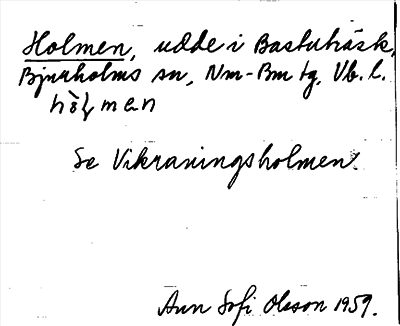 Holmen, udde i Bastuträsk,
Bjurholms sn, Nm-Bm tg, Vb. l.
men
Se Vikraningsholmen.
Ann Sofi Olsson 1959.